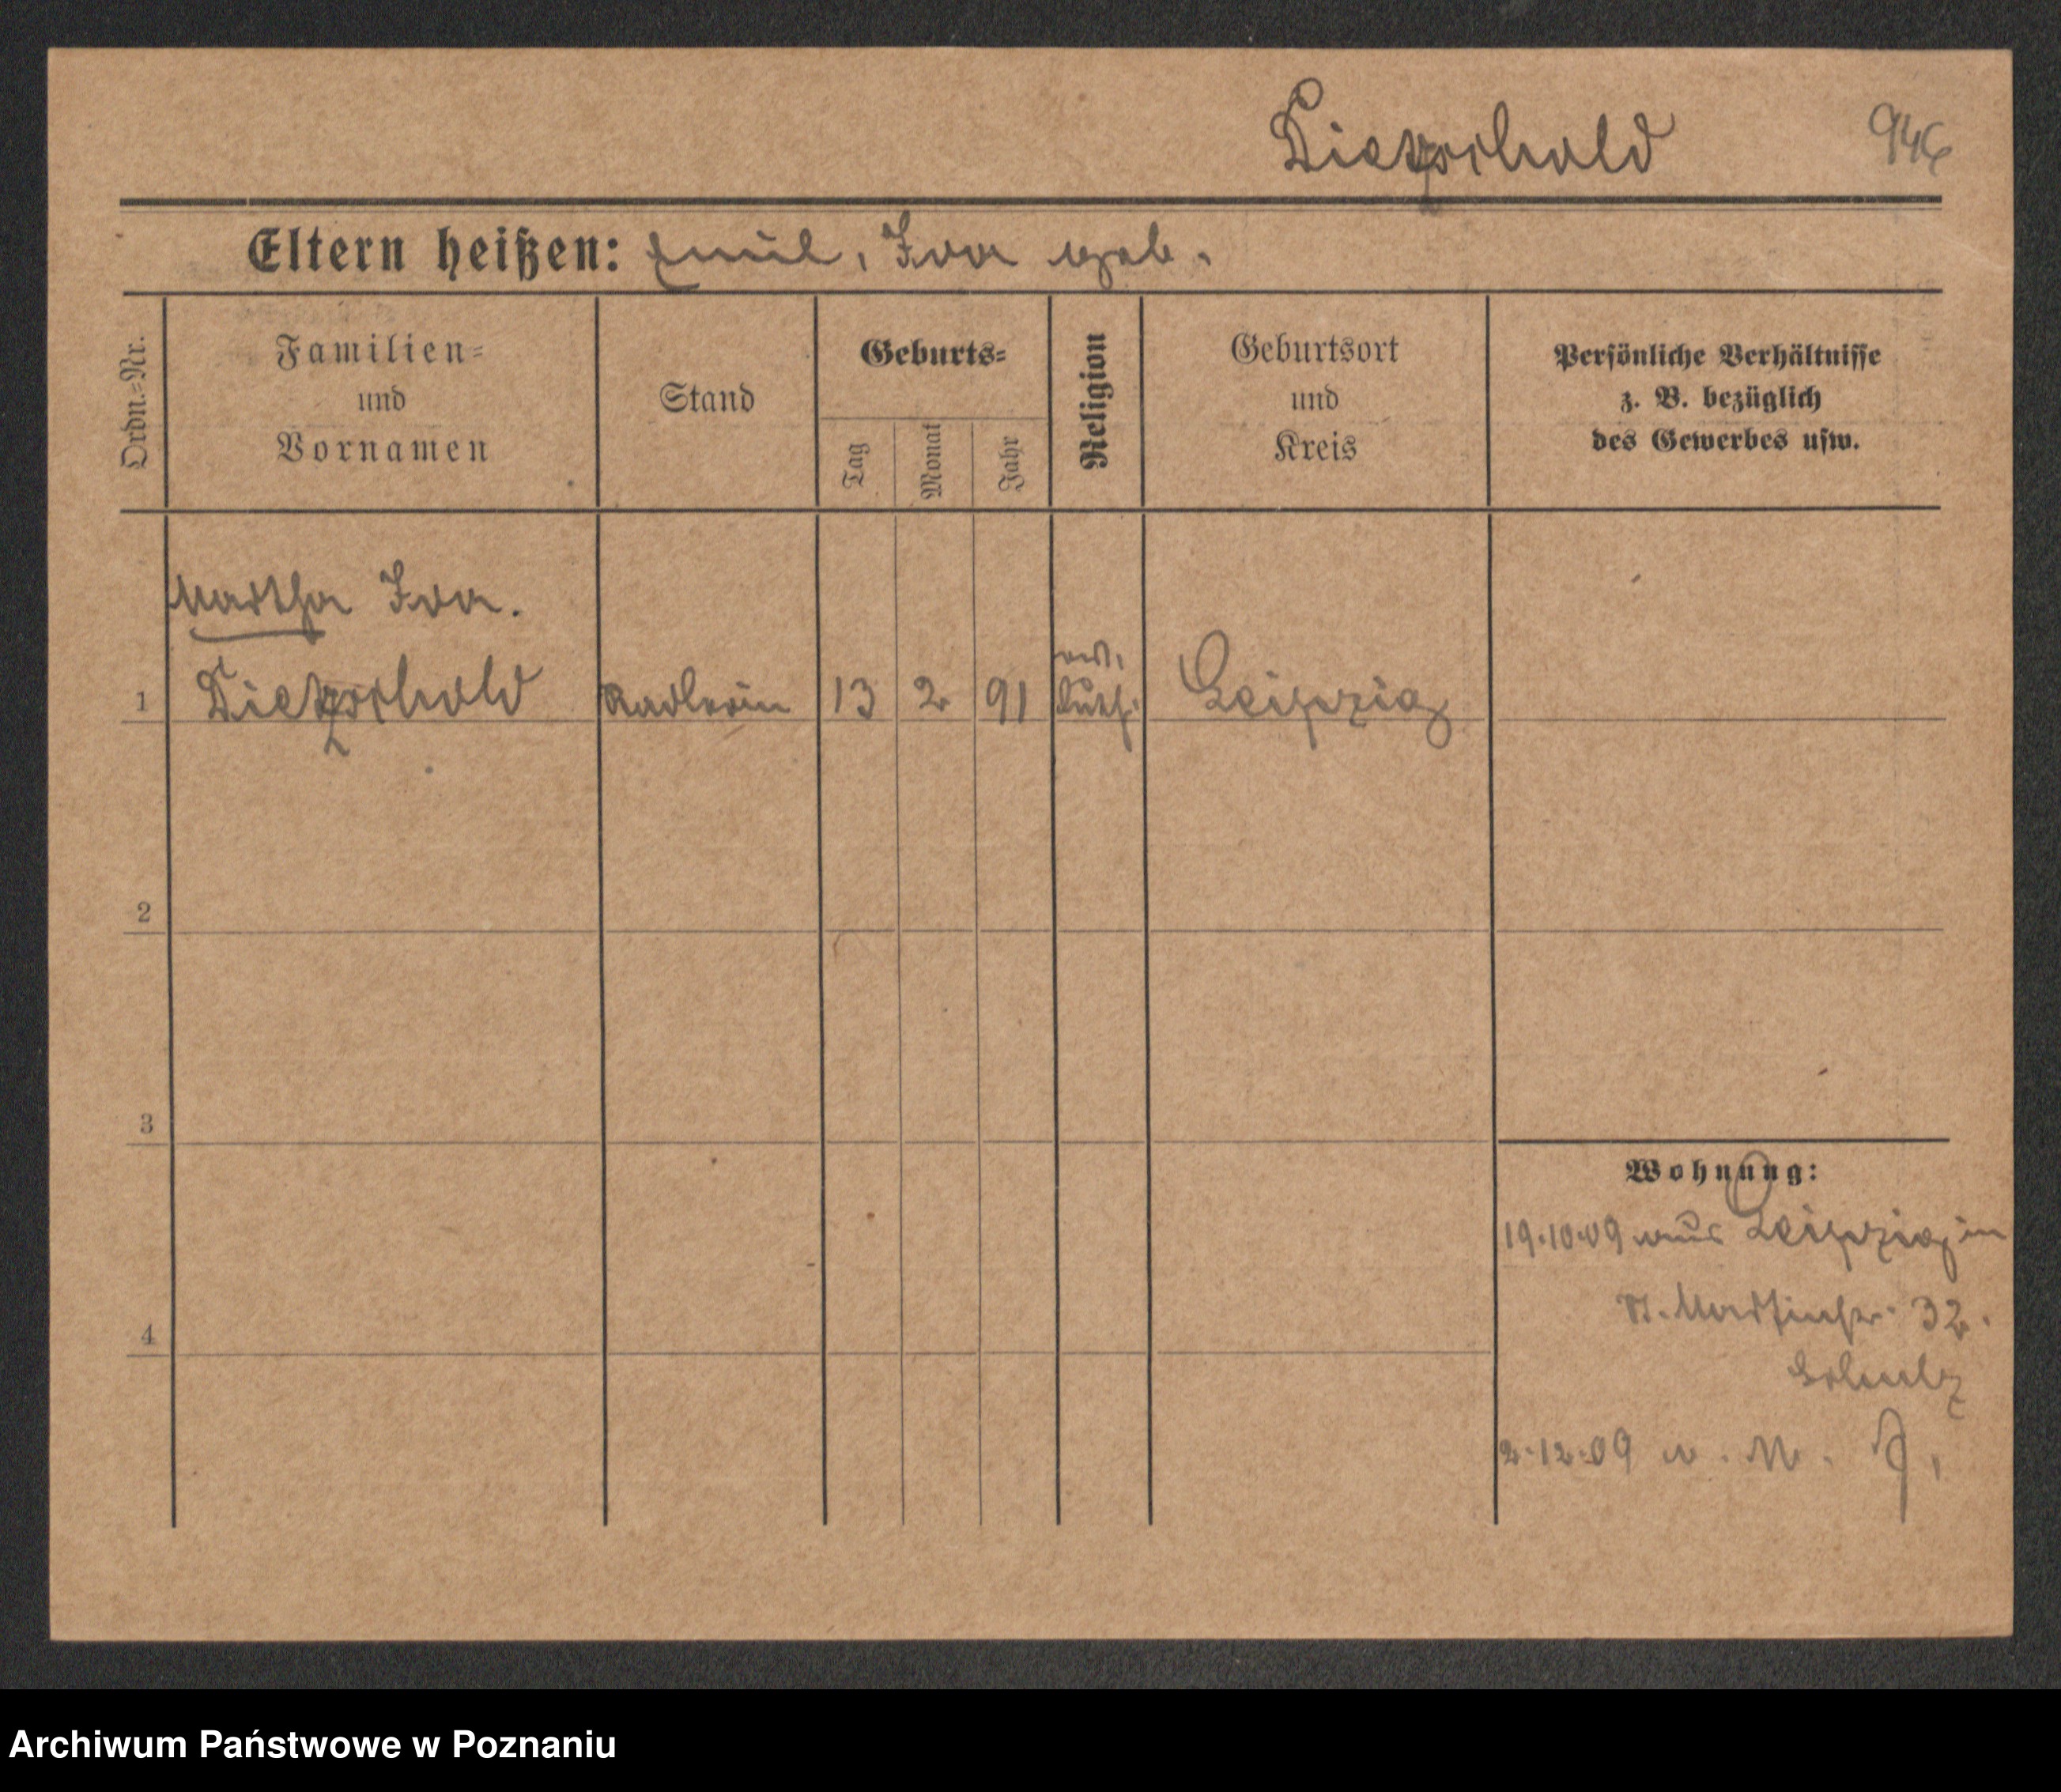 Dietzschold 946
Eltern heißen: Emil, Ida geb.
Ordn.-Nr.
Familien-
und
Vornamen
Stand
Geburts-
Tag
Monat
Jahr
Religion
Geburtsort
und
Kreis
Persönliche Verhältnisse
z. B. bezüglich
des Gewerbes usw.
Martha Ida.
1 Dietzschold 13 2 91 ev. luth. Leipzig
2
3
4
Wohnung:
19.10.09 aus Leipzig in
St. Martinstr. 32.
Schulz
2.12.09